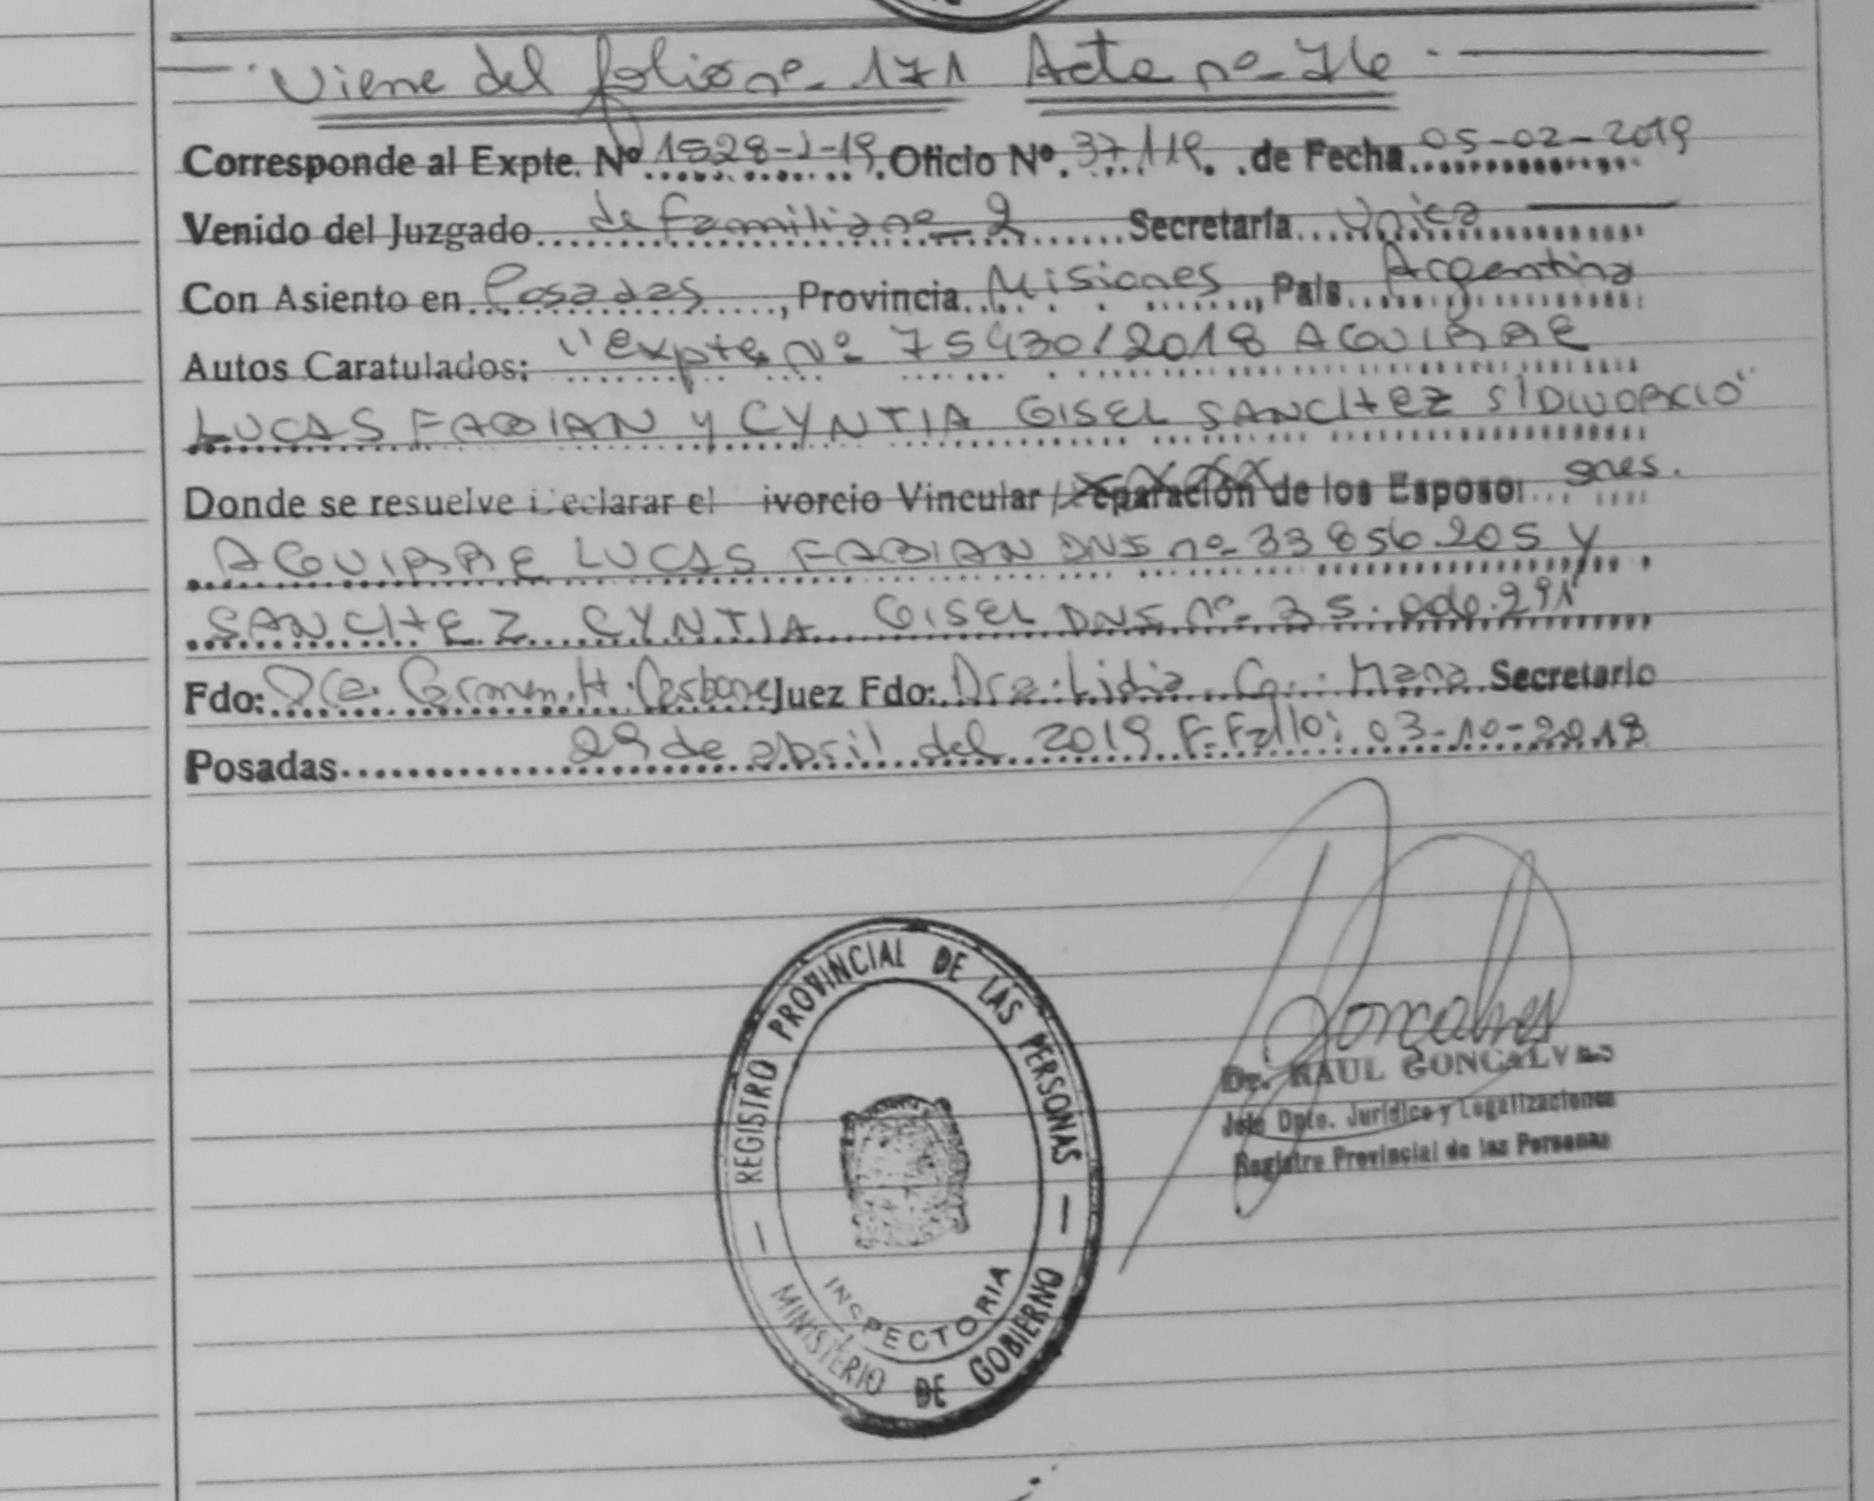 Viene del folio nº 171 Acta nº 76
Corresponde al Expte. Nº 1528-J-19 Oficio Nº 37119 de Fecha 05-02-2019
Venido del Juzgado de Familia nº 2 Secretaría Unica
Con Asiento en Posadas, Provincia Misiones, País Argentina
Autos Caratulados: "Expte Nº 75430/2018 AGUIRRE
LUCAS FABIAN Y CYNTIA GISEL SANCHEZ S/DIVORCIO"
Donde se resuelve Declarar el ivorcio Vincular / eparación de los Esposos
AGUIRRE LUCAS FABIAN DNI nº 33856205 Y
SANCHEZ CYNTIA GISEL DNI nº 35.
Fdo: Dra. Carmen H. Carbone Juez Fdo: Dra. Lidia Secretario
Posadas 29 de abril del 2019 F.Fallo: 03-10-2018
REGISTRO PROVINCIAL DE LAS PERSONAS
INSPECTORIA
MINISTERIO DE GOBIERNO
Dr. RAUL GONCALVES
Jefe Dpto. Jurídico y Legalizaciones
Registro Provincial de las Personas